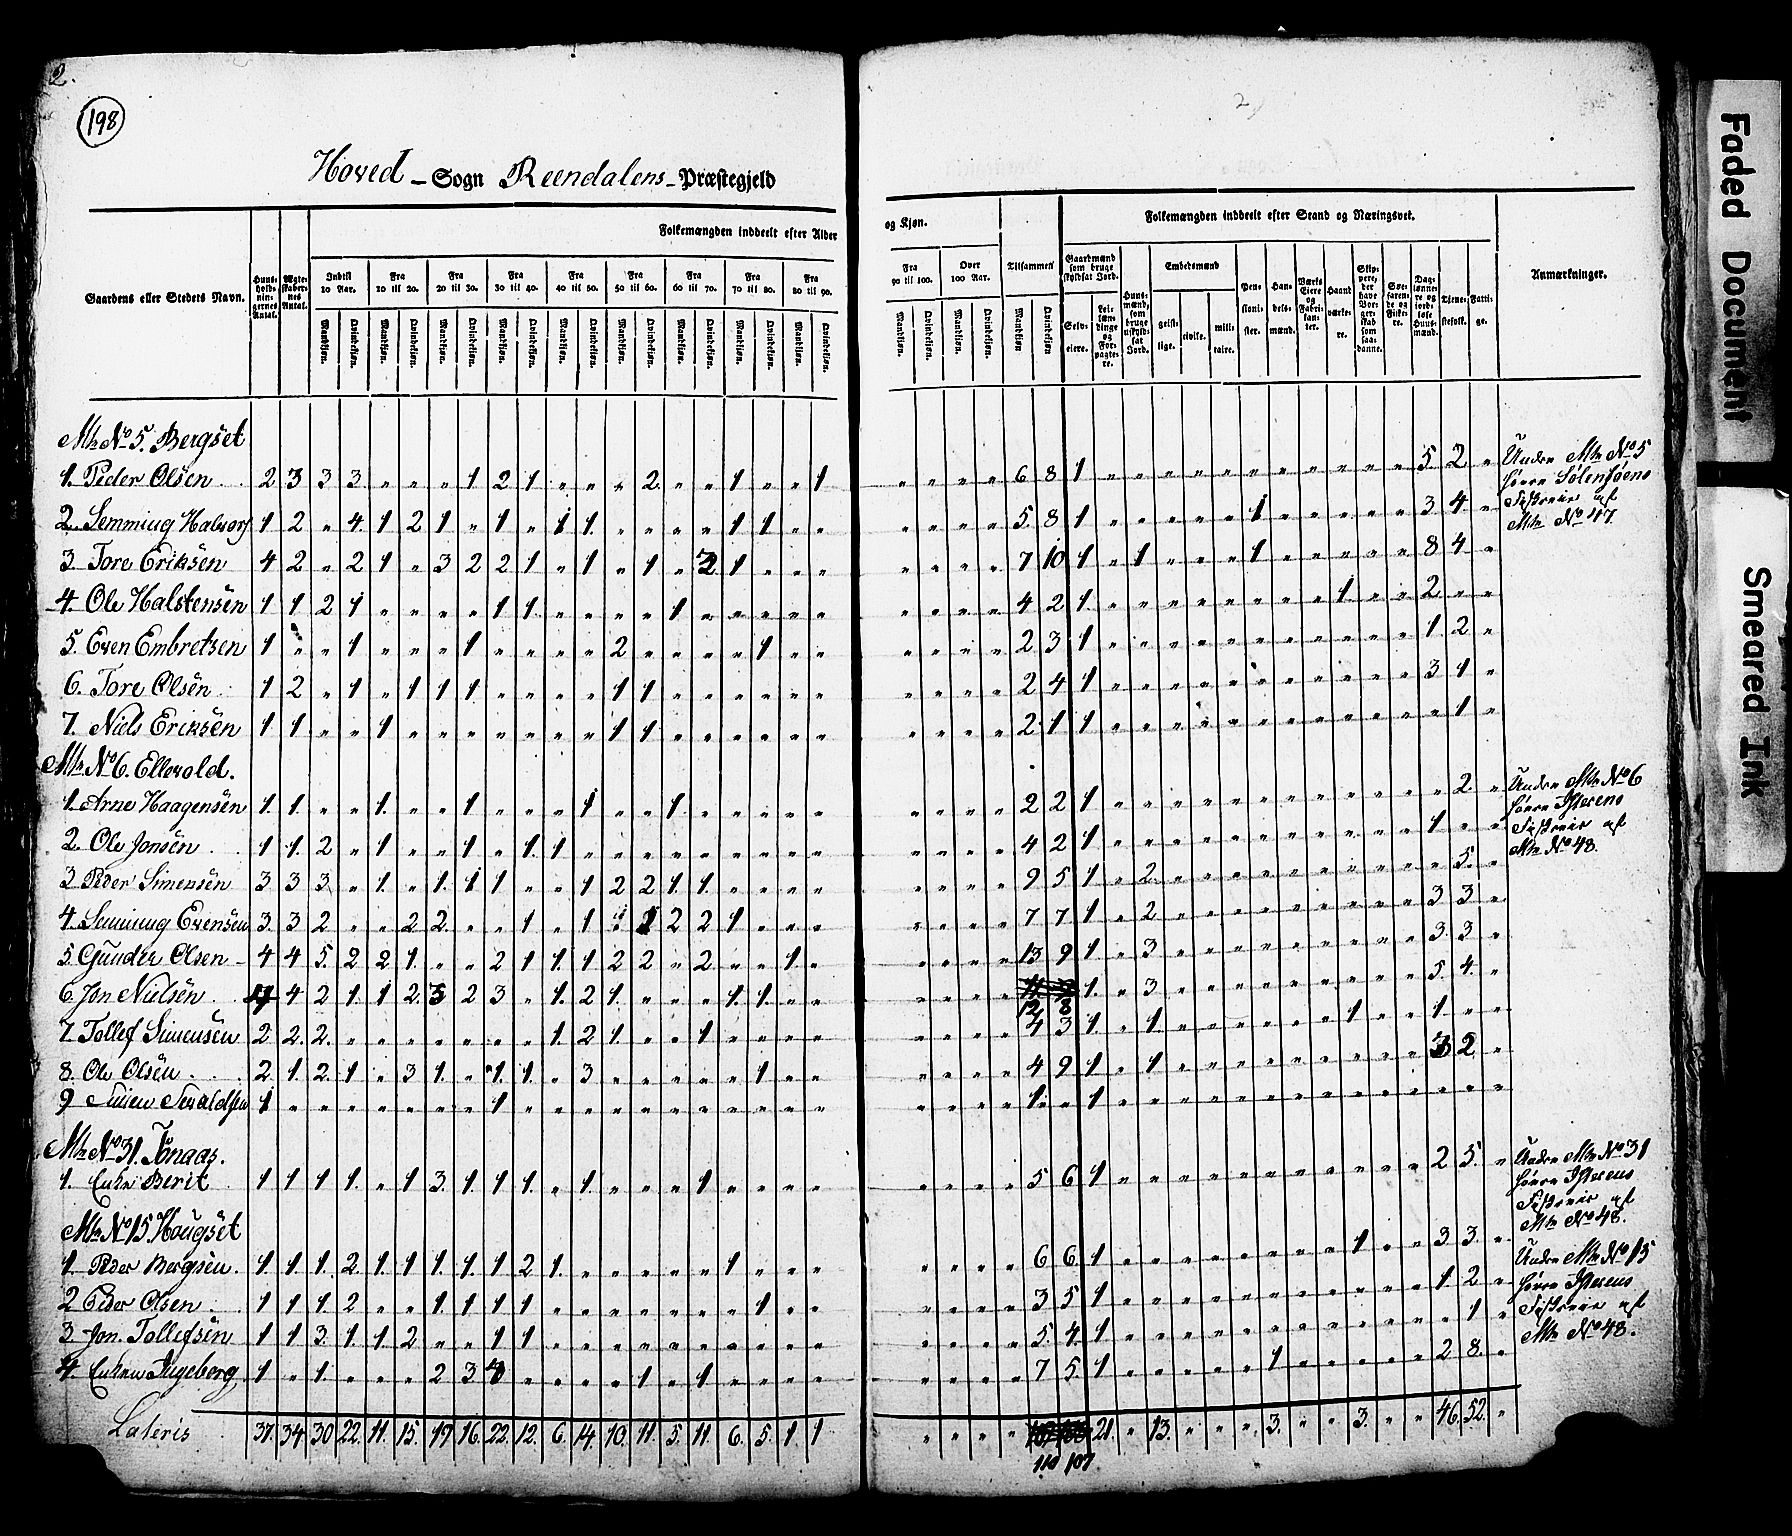 2.
198
2
Hoved – Sogn Reendalens – Præstegjeld
Gaardens eller Stedets Navn.
Huusholdningernes Antal.
Ægteskabernes Antal.
Folkemængden inddeelt efter Alder
og Kjøn.
Indtil 10 Aar.
Fra 10 til 20.
Fra 20 til 30.
Fra 30 til 40.
Fra 40 til 50.
Fra 50 til 60.
Fra 60 til 70.
Fra 70 til 80.
Fra 80 til 90.
Fra 90 til 100.
Over 100 Aar.
Tilsammen
Mandkjøn.
Qvindekjøn.
Folkemængden inddeelt efter Stand og Næringsvei.
Gaardmænd som bruge skyldsat Jord.
Selveiere.
Leilændinge og Forpagtere.
Huusmænd, som bruge uskyldsat Jord.
Embedsmænd
geistlige.
civile.
militaire.
Pensionister.
Handelsmænd.
Værkseiere og Fabrikanter.
Haandværkere.
Søefarende og Fiskere.
Daglønnere og jordløse Huusmænd.
Tjenestefolk.
Fattige.
Anmærkninger.
Mk No 5. Bergset
1. Peder Olsen 2 3 3 3 „ „ „ 1 2 1 „ „ „ 2 „ „ 1 „ „ 1 „ „ „ „ 6 8 1 „ „ „ „ „ „ „ „ „ „ „ 5 2 „
2. Semming Halvors 1 2 „ 4 1 2 1 „ 1 „ 1 1 „ „ „ „ 1 1 „ „ „ „ „ „ 5 8 1 „ „ „ „ „ 1 „ „ „ „ „ 3 4 „
3. Tore Eriksen 4 2 „ 2 1 „ 3 2 2 1 „ 1 „ 1 „ 3 1 „ „ „ „ „ „ „ 7 10 1 „ 1 „ „ „ 1 „ „ „ „ „ 8 4 „
4. Ole Halstensen 1 1 2 1 „ „ „ „ 1 1 „ „ „ „ 1 „ „ „ „ „ „ „ „ „ 4 2 1 „ „ „ „ „ „ „ „ 1 „ „ 2 „ „
5. Even Embretsen 1 „ „ 1 „ „ „ 1 „ „ „ „ 2 „ „ „ „ 1 „ „ „ „ „ „ 2 3 1 „ „ „ „ „ „ „ „ „ „ „ 1 2 „
6. Tore Olsen 1 2 „ 1 „ 1 1 1 „ „ „ „ 1 1 „ „ „ „ „ „ „ „ „ „ 2 4 1 „ „ „ „ „ „ „ „ „ „ „ 3 1 „
7. Niels Eriksen 1 1 „ „ 1 „ „ „ „ „ „ „ 1 1 „ „ „ „ „ „ „ „ „ „ 2 1 1 „ „ „ „ „ „ „ „ „ „ „ „ 1 „
Undre Mk No 5
hører Sølensøens
Fiskevær af
Mk No 47.
Mk No 6. Ellevold.
1. Arne Haagensen 1 1 „ „ 1 „ „ 1 „ „ „ 1 „ „ 1 „ „ „ „ „ „ „ „ „ 2 2 1 „ „ „ „ „ „ „ „ „ „ „ „ 2 „
2. Ole Jonsen 1 1 2 „ 1 „ „ 1 „ 1 1 „ „ „ „ „ „ „ „ „ „ „ „ „ 4 2 1 „ „ „ „ „ „ „ „ „ „ „ 1 „ „
3. Peder Simensen 3 3 3 „ 1 „ 1 1 1 „ „ 1 2 2 1 1 „ „ „ „ „ „ „ „ 9 5 1 „ 2 „ „ „ „ „ „ „ „ „ „ 5 „
4. Semming Evensen 3 3 2 „ „ 2 2 „ „ 1 „ 1 „ 1 2 2 1 „ „ „ „ „ „ „ 7 7 1 „ 2 „ „ „ „ „ „ „ „ „ 3 3 „
5. Gunder Olsen 4 4 5 2 2 1 „ „ 2 1 1 1 2 2 „ 2 „ „ 1 „ „ „ „ „ 13 9 1 „ 3 „ „ „ „ „ „ „ „ „ 3 3 „
6. Jon Nielsen 4 4 2 1 1 2 3 2 3 „ 1 2 1 „ „ „ 1 1 „ „ „ „ „ „ 12 8 1 „ 3 „ „ „ „ „ „ „ „ „ 5 4 „
7. Tollef Simensen 2 2 2 „ „ „ „ „ „ „ 1 2 1 „ „ 1 „ „ „ „ „ „ „ „ 4 3 1 „ 1 „ „ „ „ „ „ 1 „ „ 1 „ „
8. Ole Olsen 2 1 2 1 „ 3 1 „ 1 1 „ 3 „ „ „ „ „ 1 „ „ „ „ „ „ 4 9 1 „ 1 „ „ „ „ „ „ „ „ „ 3 2 „
9 Simen 1 „ „ „ „ „ „ „ 1 „ „ „ „ „ „ „ „ „ „ „ „ „ „ „ 1 „ 1 „ „ „ „ „ „ „ „ „ „ „ „ „ „
Undre Mk No 6
hører Isterens
Fiskevær af
Mk No 48.
Mk No 31. Jonaas.
1. Enke Berit 1 1 1 1 „ 1 3 1 1 1 „ 1 „ „ „ 1 „ „ „ „ „ „ „ „ 5 6 1 „ „ „ „ „ „ „ „ „ „ „ 2 5 „
Undre Mk No 31
hører Isterens
Fiskevær af
Mk No 48.
Mk No 15 Haugset
1. Peder Bergsen 1 1 1 2 1 1 1 1 1 2 1 „ „ „ „ „ 1 „ „ „ „ „ „ „ 6 6 1 „ „ „ „ „ „ „ „ 1 „ „ 3 3 „
2 Peder Olsen 1 1 1 2 „ „ 1 1 1 1 „ „ „ „ „ „ „ 1 „ „ „ „ „ „ 3 5 1 „ „ „ „ „ „ „ „ „ „ „ 1 2 „
3. Jon Tollefsen 1 1 3 1 1 2 „ „ 1 1 „ „ „ „ „ „ „ „ „ „ „ „ „ „ 5 4 1 „ „ „ „ „ „ „ „ „ „ „ „ 1 „
4. Enken Ingeborg 1 „ 1 „ „ „ 2 3 4 „ „ „ „ 1 „ 1 „ „ „ „ „ „ „ „ 7 5 1 „ „ „ „ „ „ 1 „ „ „ „ 2 8 „
Undre Mk No 15
hører Isterens
Fiskevær af
Mk No 48.
Lateris 37. 34 30 22 11. 15. 19 16. 22. 12. 6. 14. 10. 11. 5. 11. 6. 5. 1 1 „ „ „ „ 110 107 21. „ 13. „ „ „ „ 3. „ „ 3. „ „ 46. 52. „
Faded Document
Smeared Ink